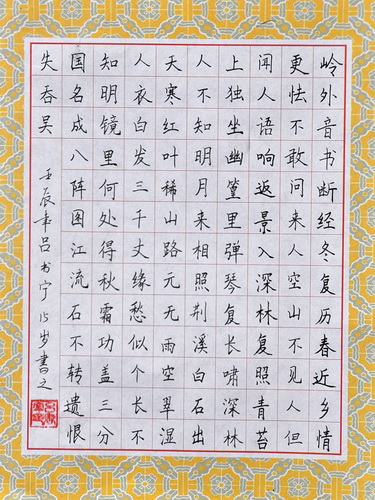 岭外音书断经冬复历春近乡情
更怯不敢问来人空山不见人但
闻人语响返景入深林复照青苔
上独坐幽篁里弹琴复长啸深林
人不知明月来相照荆溪白石出
天寒红叶稀山路元无雨空翠湿
人衣白发三千丈缘愁似个长不
知明镜里何处得秋霜功盖三分
国名成八阵图江流石不转遗恨
失吞吴 壬辰年吕书宁15岁書之